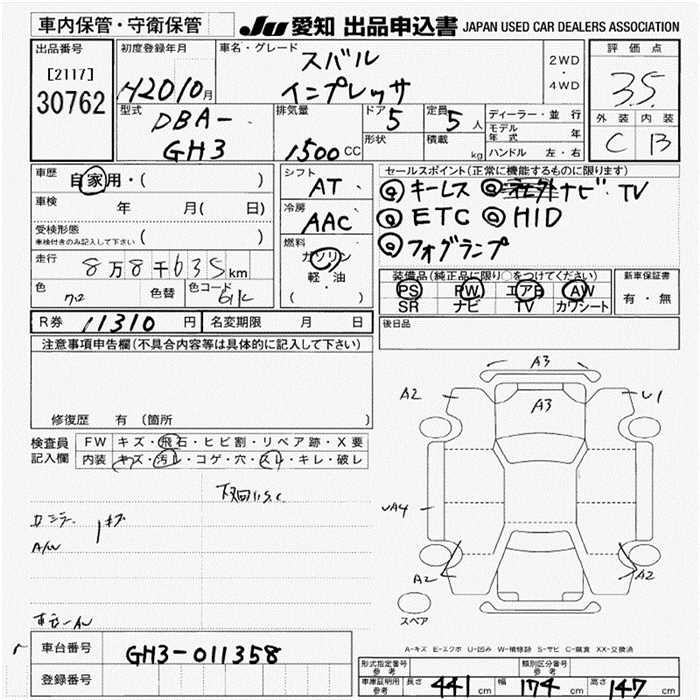 車内保管・守衛保管
JU 愛知 出品申込書 JAPAN USED CAR DEALERS ASSOCIATION
出品番号
[2117]
30762
初度登録年月
H20 10月
車名・グレード
スバル
インプレッサ
2WD
・
4WD
評価点
3.5
外装 内装
C B
型式
DBA-
GH3
排気量
1500cc
ドア
5
形状
定員
5人
積載
kg
ディーラー・並行
モデル年式 年
ハンドル 左・右
車歴
自家用・( )
車検 年 月( 日)
受検形態
車検付きのみ記入して下さい ( )
走行 8万8千635km
色 色替 色コード 61K
シフト
AT
冷房
AAC
燃料
ガソリン
・
軽・油
( )
セールスポイント(正常に機能するものに限ります)
キーレス 社外ナビ・TV
ETC HID
フォグランプ
装備品(純正品に限り○をつけてください)
PS PW エアB AW
SR ナビ TV カワシート
新車保証書
有・無
R券 11310円 名変期限 月 日
後日品
注意事項申告欄(不具合内容等は具体的に記入して下さい)
修復歴 有 〔箇所 〕
検査員
記入欄
FW キズ・飛石・ヒビ割・リペア跡・X要
内装 キズ・汚レ・コゲ・穴・スレ・キレ・破レ
下回りS.C
キズ
A/W
A3
A2 A3 U1
UA4
A2 A2
スペア
A-キズ E-エクボ U-凹み W-補修跡 S-サビ C-腐食 XX-交換済
車台番号 GH3-011358
登録番号
形式指定番号
参考
類別区分番号
参考
車庫証明用
参考
長さ 441cm 幅 174cm 高さ 147cm